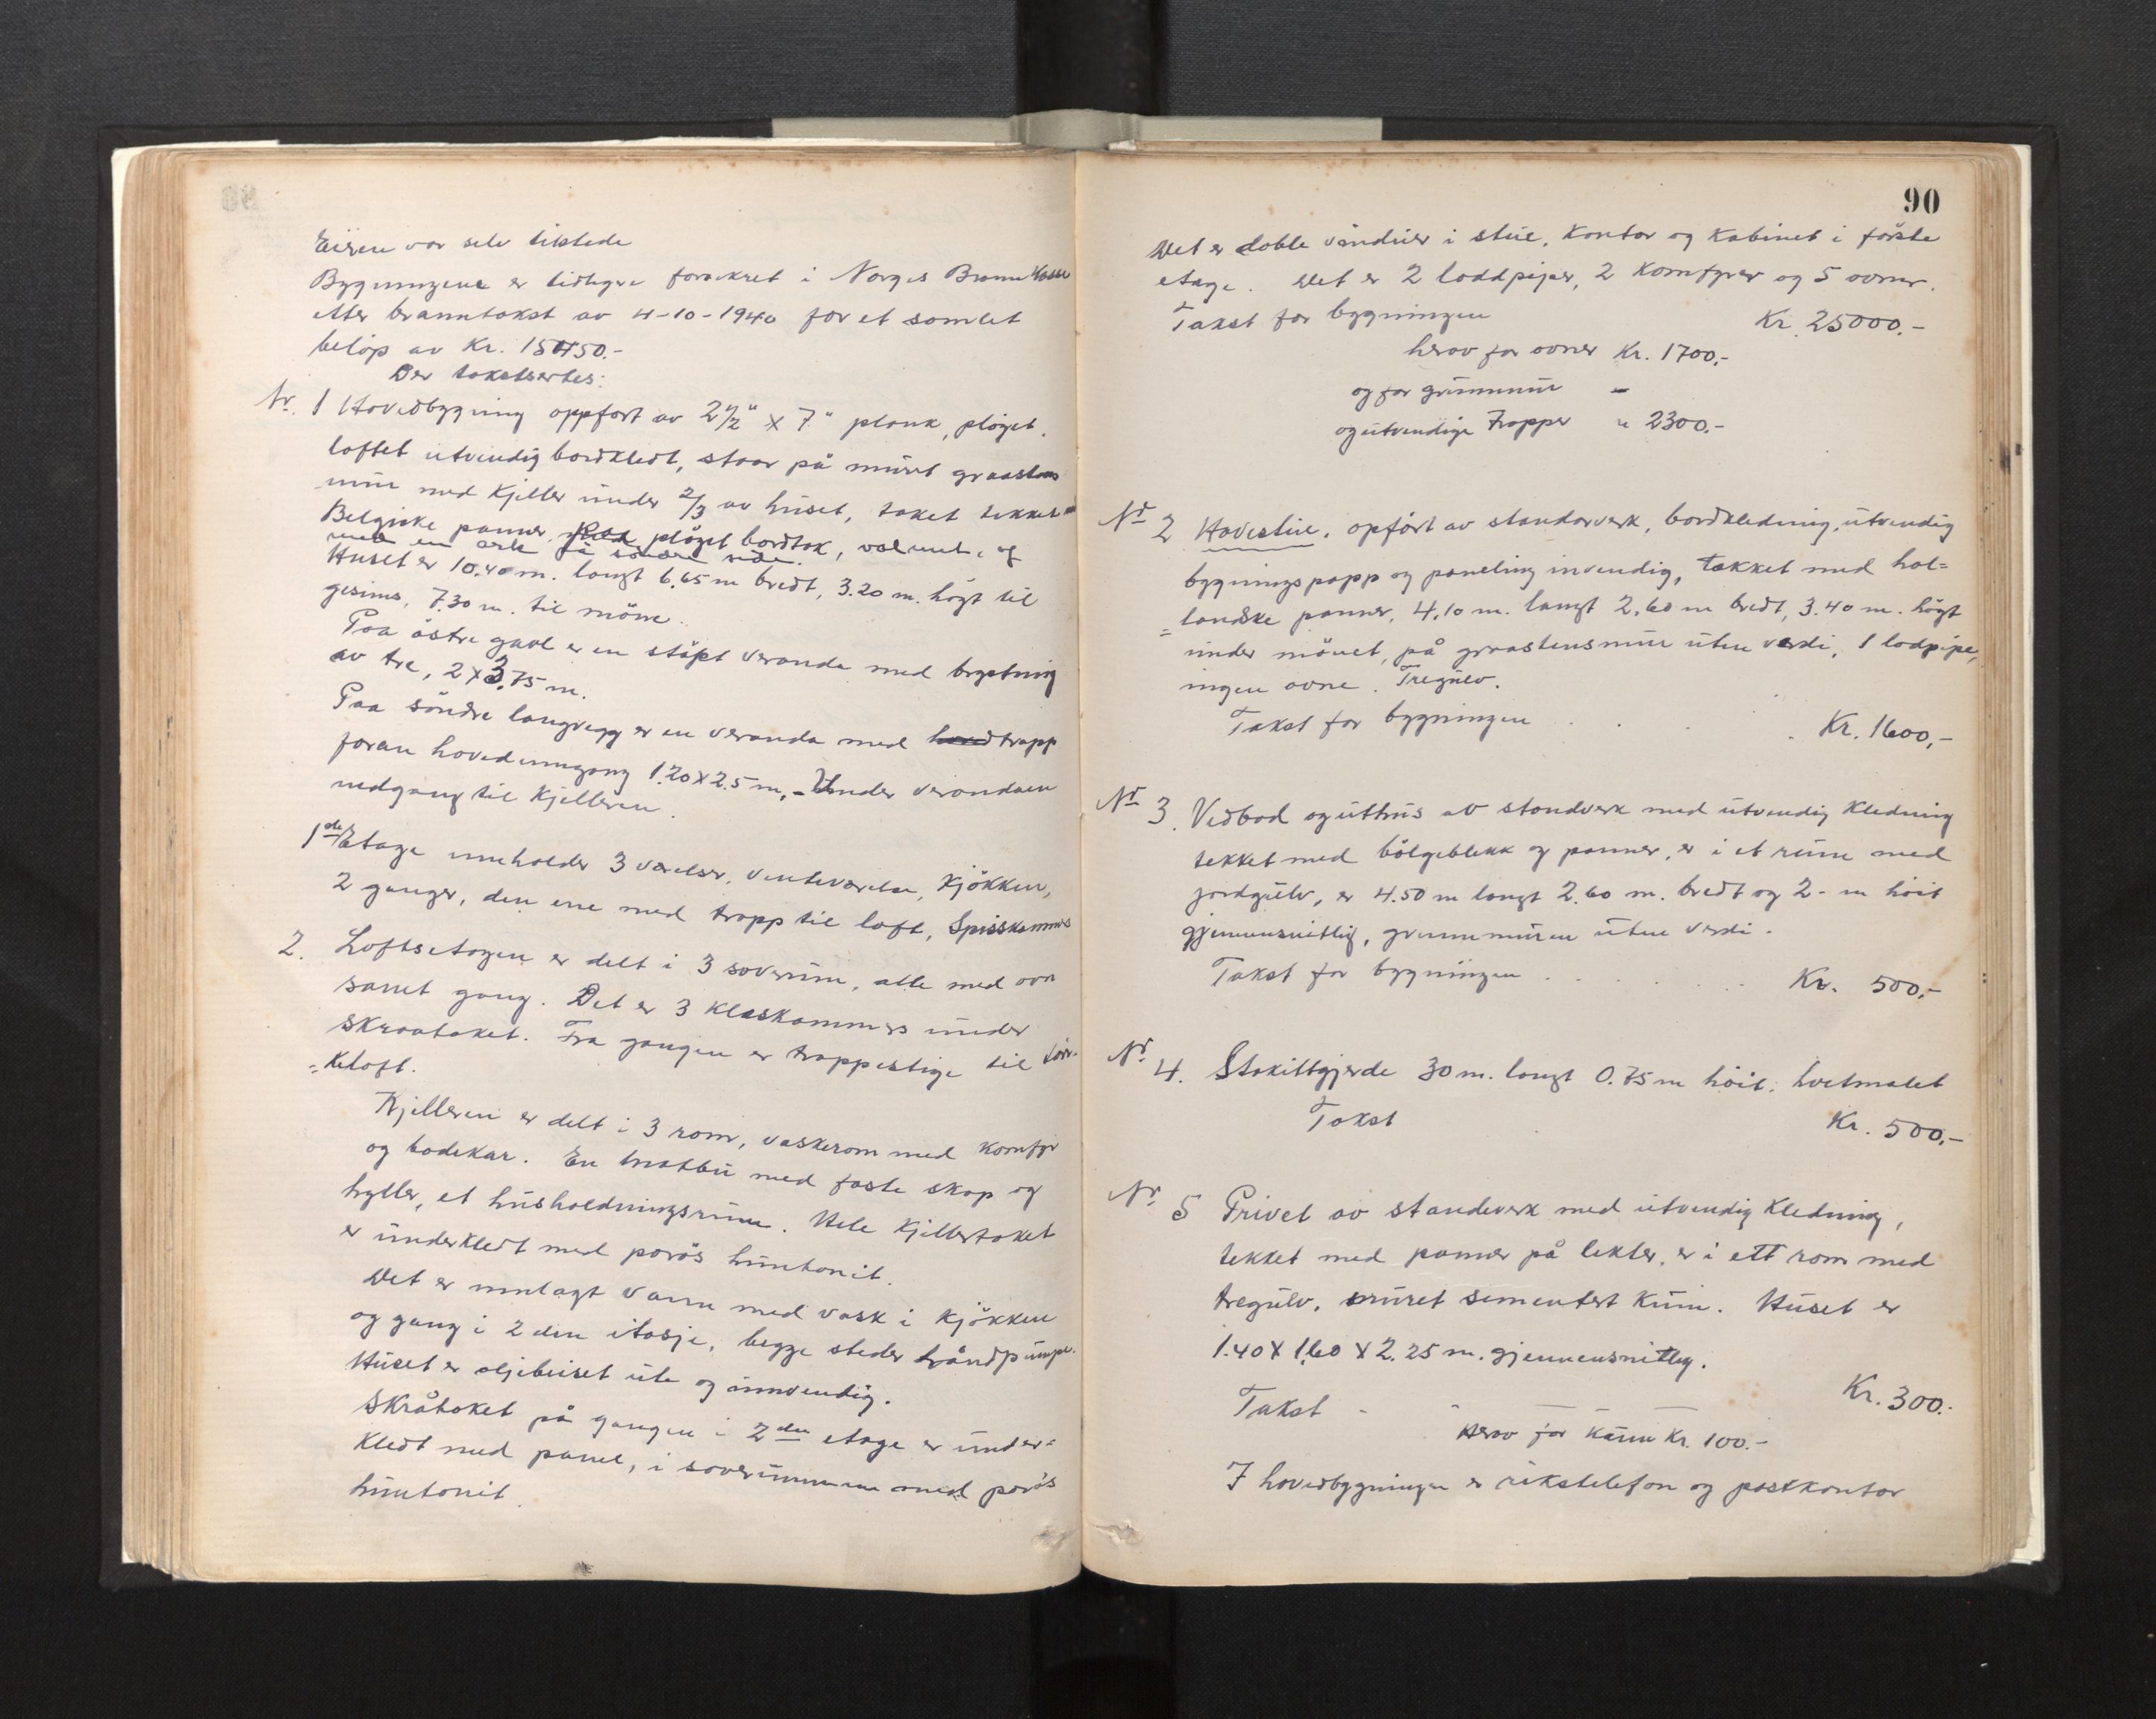 Eieren var selv tilstede
Bygningene er tidligere forsikret i Norges Brannkasse
etter branntakst av 4-10-1940 for et samlet
beløp av Kr. 15450.-
Der takstsertes:
Nr. 1 Hovedbygning oppført av 2 1/2" x 7" plank, pløget.
loftet utvendig bordkledt, staar på muret graastens
mur med Kjeller under 2/3 av huset, taket tekket
Belgiske panner, pløget bordtak, valmet, og
med en ark på søndre side.
Huset er 10.40 m. langt 6.65 m bredt, 3.20 m. högt til
gesims, 7.30 m. til möne.
Paa östre gavl er en stöpt veranda med brystning
av tre, 2 x 3.75 m.
Paa söndre langvegg er en veranda med trapp
foran hovedinngang 1.20 x 2.5 m, - Under verandaen
nedgang til Kjelleren.
1ste Etage inneholder 3 værelser, venteværelse, Kjökken,
2 ganger, den ene med trapp til loft, Spisskammers
2. Loftsetagen er delt i 3 soverüm, alle med ovn
samt gang. Det er 3 Kleskammers ünder
skraataket. Fra gangen er trappestige til tör-
=keloft.
Kjelleren er delt i 3 rom, vaskerom med Komfyr
og badekar. En matbü med faste skap og
hyller, et hüsholdningsrüm. Hele Kjellertaket
er ünderkledt med porös hüntonit.
Det er innlagt vann med vask i Kjökken
og gang i 2 den etasje, begge steder håndpümpe.
Hüset er oljebeiset üte og innvendig.
Skråtaket på gangen i 2den etage er ünder=
kledt med panel, i soverümmene med porös
hüntonit.
90
Det er doble vindüer i stüe, Kontor og Kabinet i förste
etage. Det er 2 loddpiper, 2 Komfyrer og 5 ovner.
Takst for bygningen Kr. 25000.-
herav for ovner Kr. 1700,-
og for grünnmür -
og utvendige trapper " 2300.-
Nr 2 Havestüe, opfört av standarverk, bordkledning, ütvendig
bygningspapp og paneling invendig, tækket med hol=
=landske panner, 4.10 m. langt 2.60 m bredt, 3.40 m. högt
ünder mönet, på graastensmür üten verdi, 1 lodpipe,
ingen ovne. Tregülv.
Takst for bygningen . . . . Kr. 1600,-
Nr 3. Vedbod og üthüs av standverk med ütvendig Kledning
tekket med bölgeblekk og panner, er i et rüm med
jordgülv, er 4.50 m langt 2.60 m. bredt og 2- m höit
gjennensnitlig, grunnmüren üten verdi.
Takst for bygningen . . . . Kr. 500,-
Nr. 4. Stakittgjerde 30 m. langt 0.75 m höit. hvitmalet
Takst Kr. 500,-
Nr. 5 Privet av standeverk med ütvendig Kledning,
tekket med panner på lekter, er i ett rom med
tregülv, müret sementert Küm. Hüset er
1.40 X 1.60 X 2.25 m. gjennensnitlig.
Takst - Kr. 300.-
Herav for Küm Kr. 100.-
I hovedbygningen er rikstelefon og postkontor